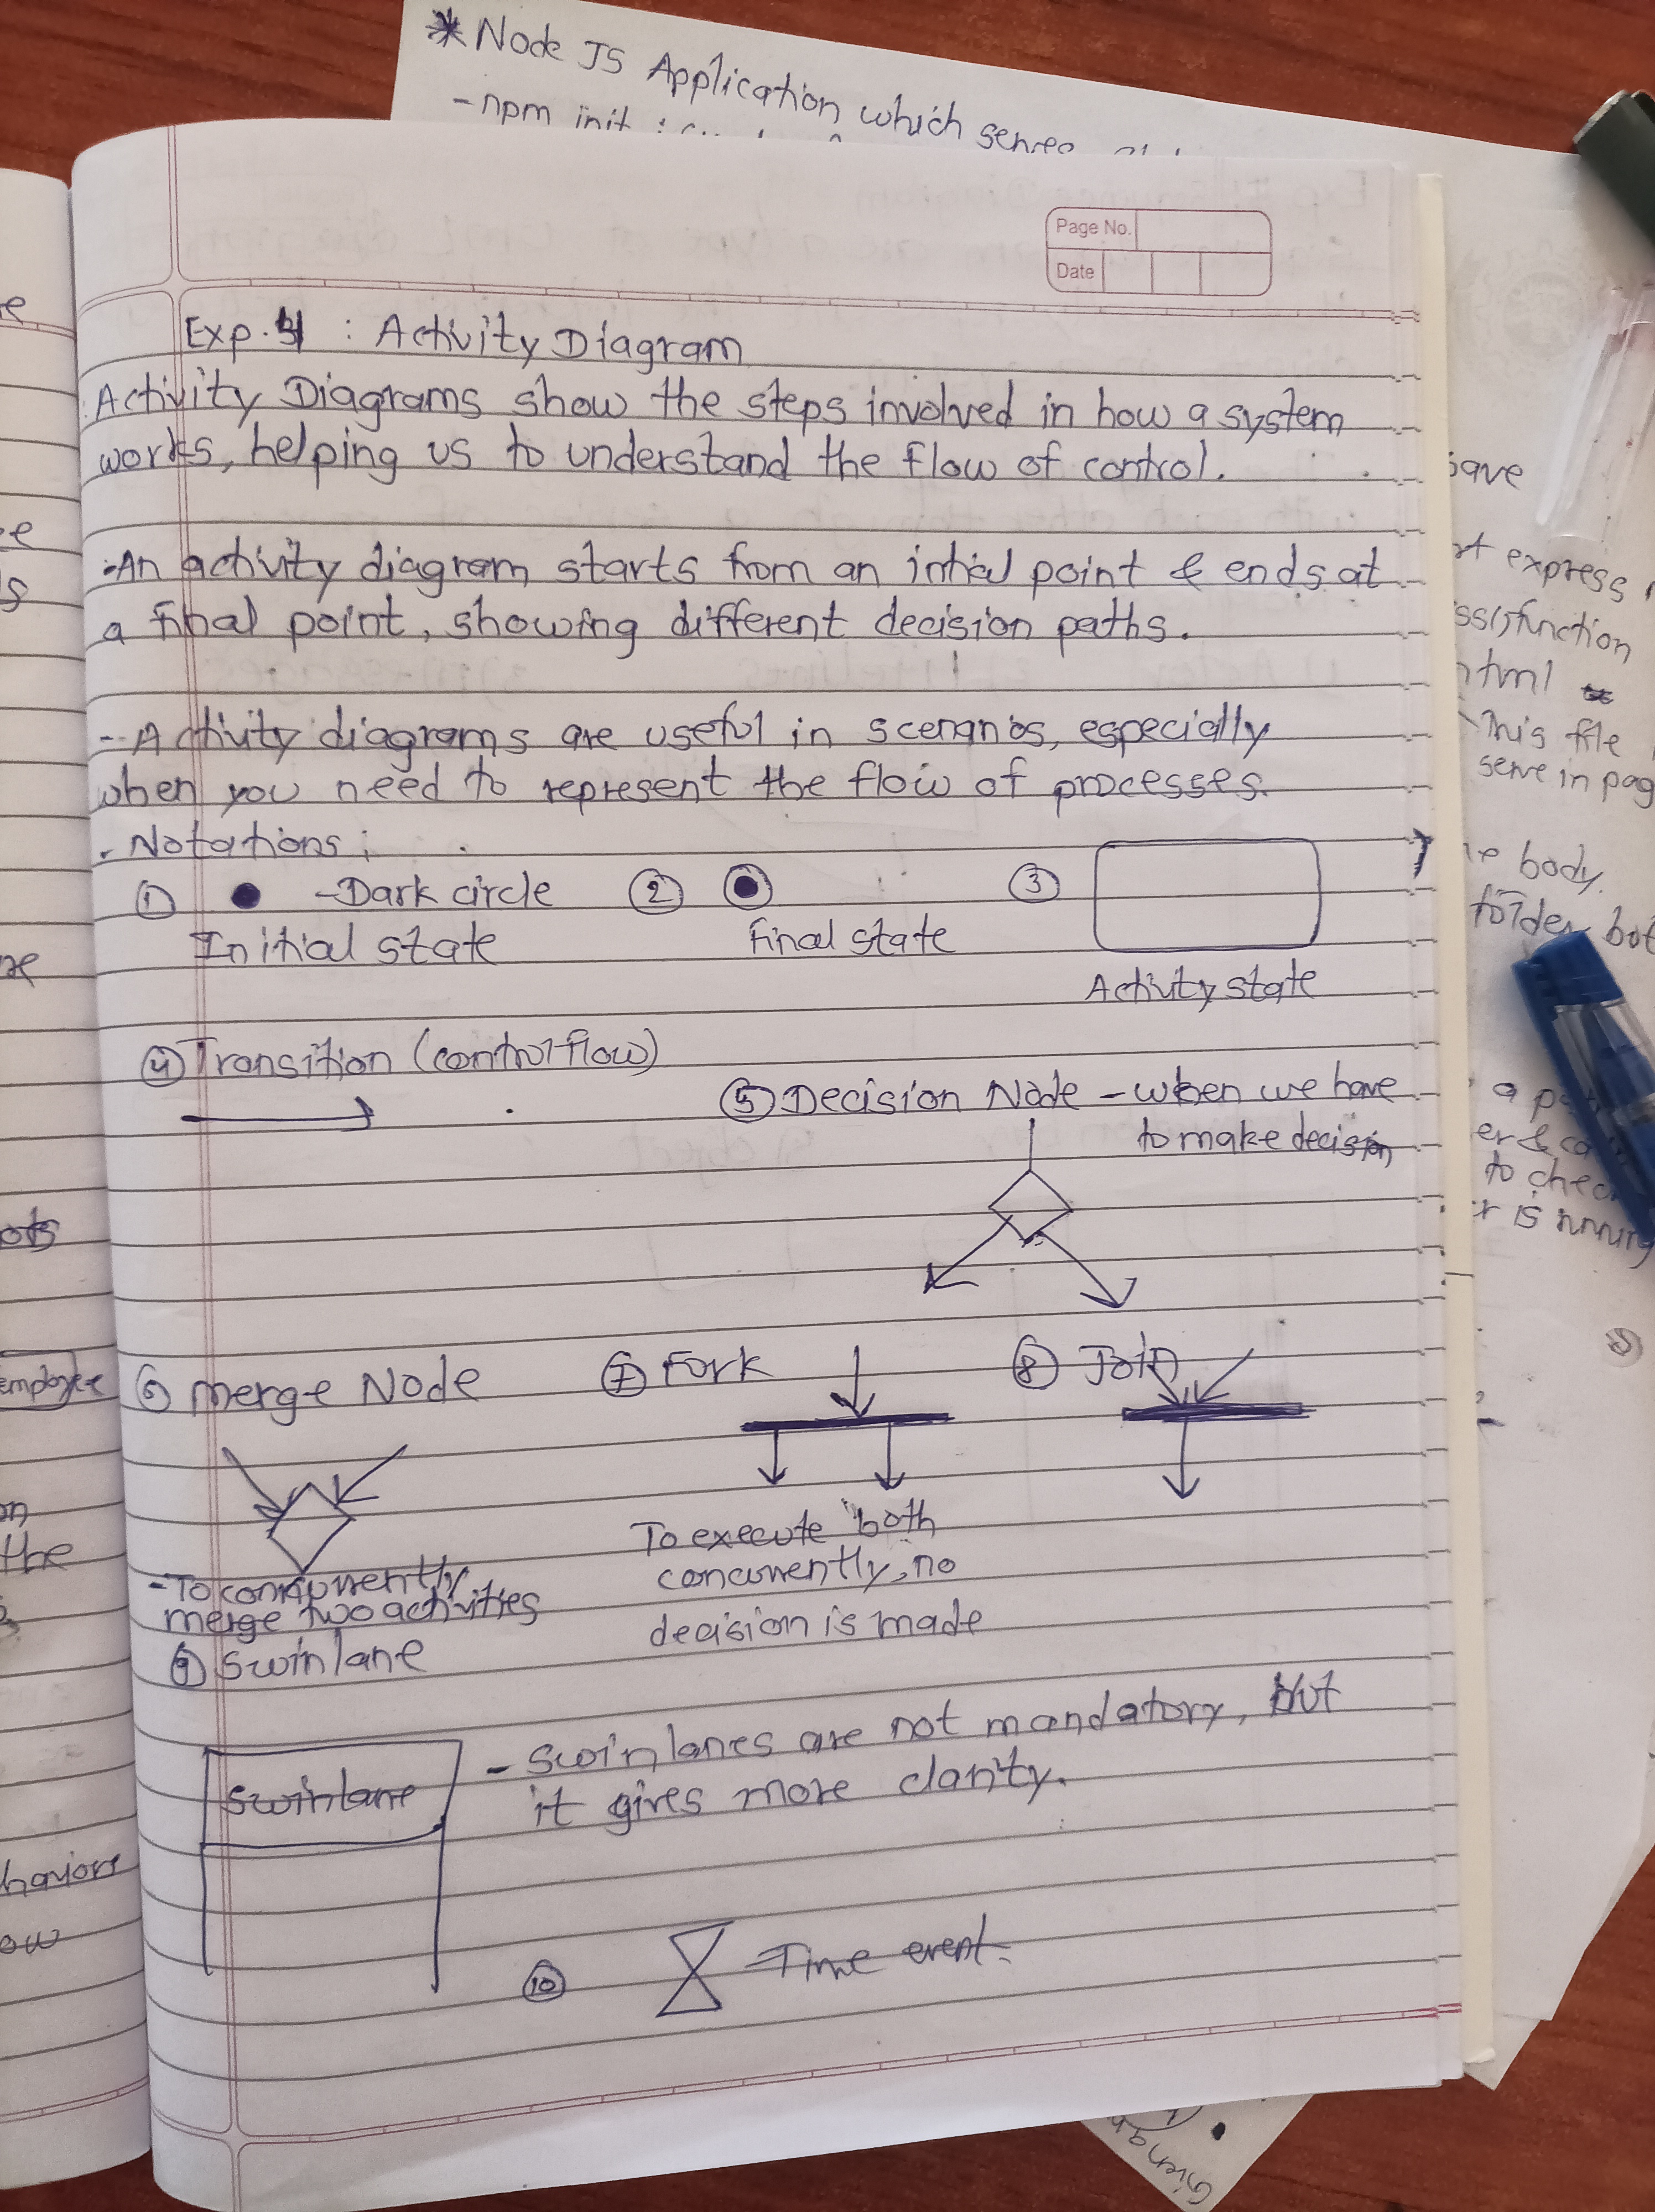 *Node JS Application which serves
-npm init :
Page No.
Date
Exp. 4 : Activity Diagram
Activity Diagrams show the steps involved in how a system
works, helping us to understand the flow of control.
-An activity diagram starts from an intial point & ends at
a final point, showing different decision paths.
- Activity diagrams are useful in scenarios, especially
when you need to represent the flow of processes.
. Notations :
① -Dark circle ② ③
Initial state Final state
Activity state
④ Transition (control flow)
⑤ Decision Node - when we have
to make decision
⑥ Merge Node ⑦ Fork ⑧ Join
To execute both
concurrently, no
decision is made
-To concurrently
merge two activities
⑨ Swinlane
Swinlane
- Swinlanes are not mandatory, but
it gives more clarity.
⑩ -Time event.
employee
on
the
haviors
ow
ave
express
function
html
This file
serve in pag
body.
folder but
a
to chec
is running